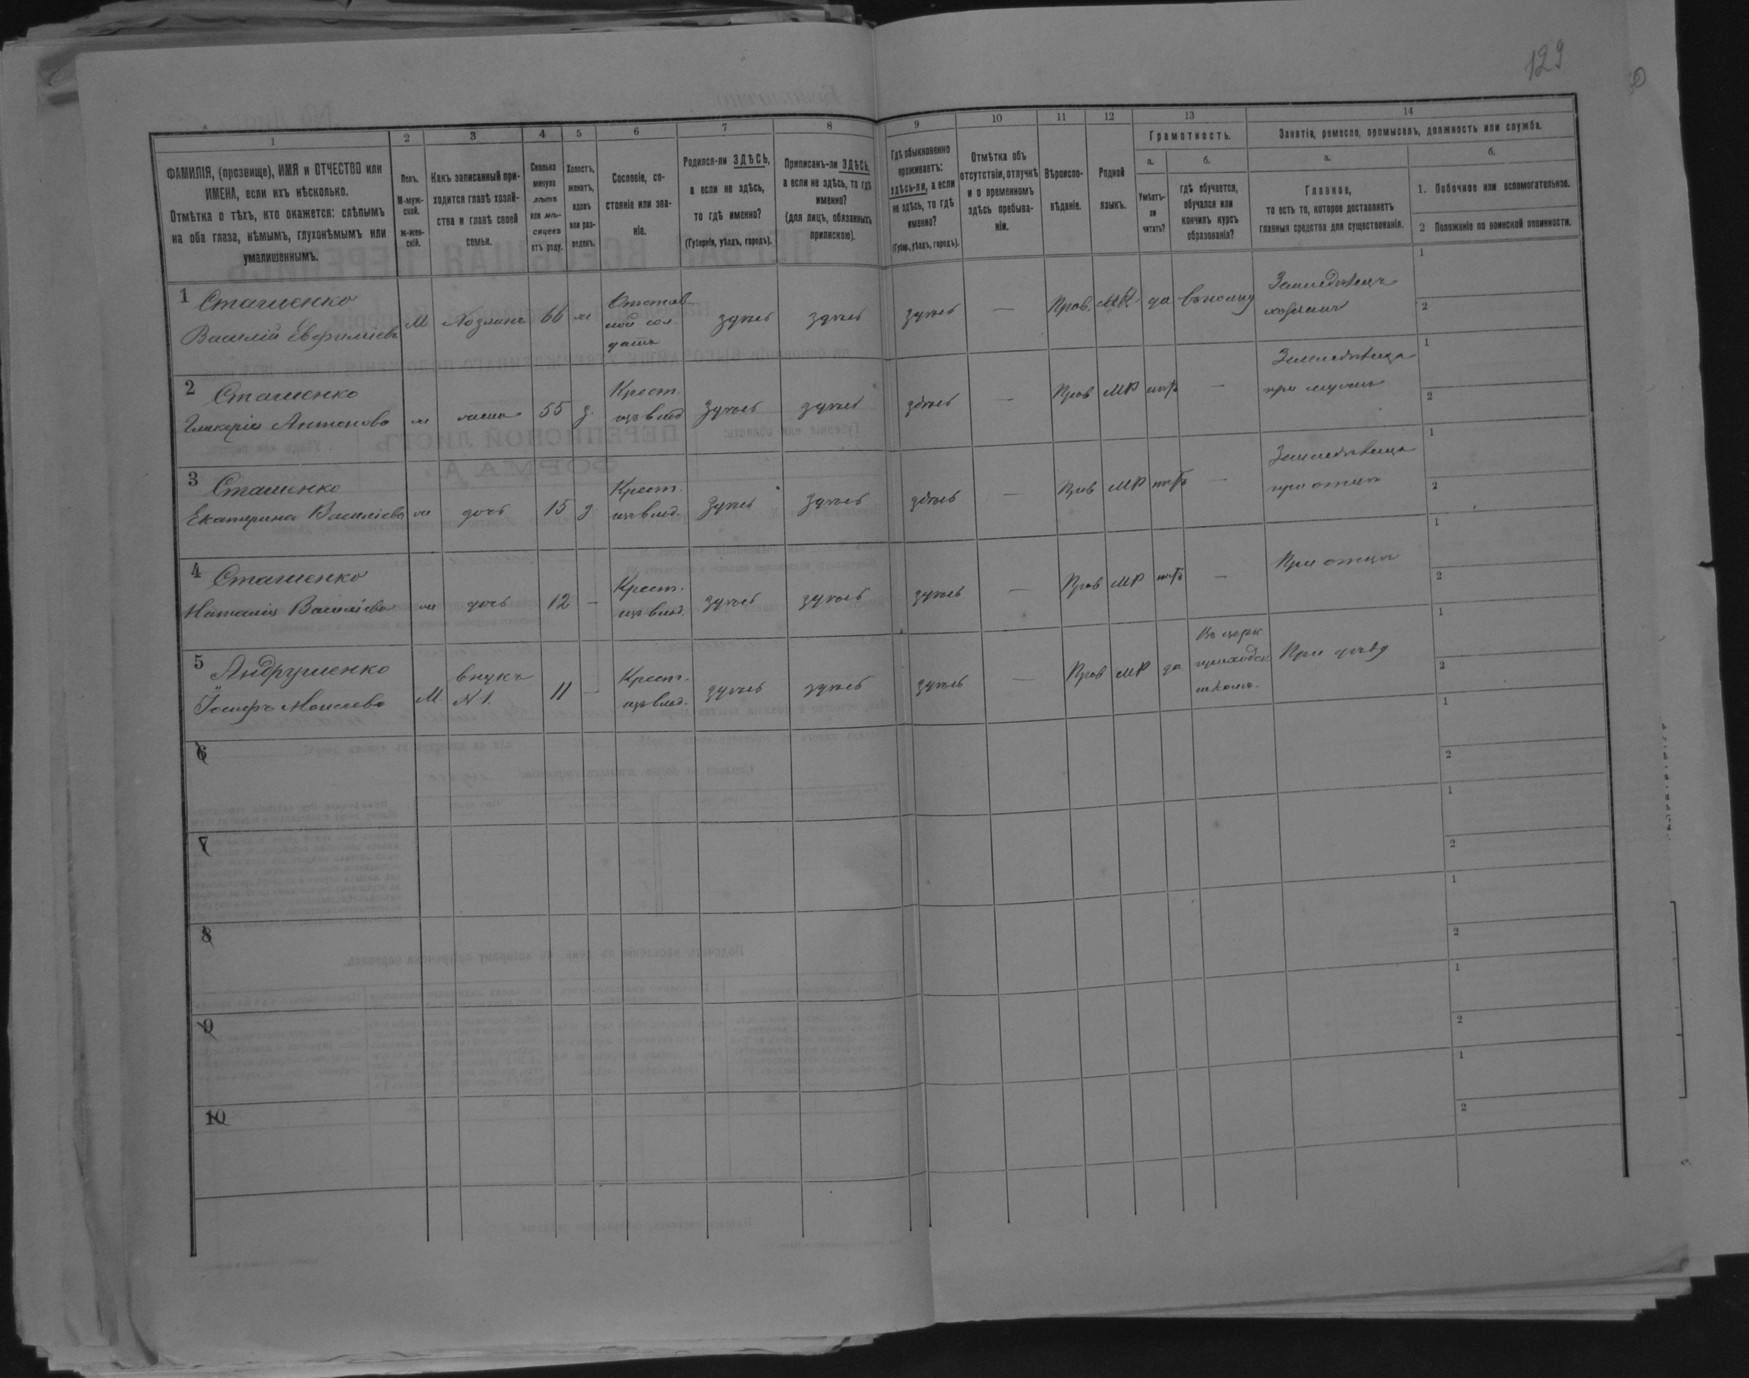 129
1
2
3
4
5
6
7
8
9
10
11
12
13
14
ФАМИЛІЯ, (прозвище), ИМЯ и ОТЧЕСТВО или
ИМЕНА, если ихъ нѣсколько.
Отмѣтка о тѣхъ, кто окажется: слѣпымъ
на оба глаза, нѣмымъ, глухонѣмымъ или
умалишеннымъ.
Полъ.
М-муж-
ской.
Ж-жен-
скій.
Какъ записанный при-
ходится главѣ хозяй-
ства и главѣ своей
семьи.
Сколько
минуло
лѣтъ
или мѣ-
сяцевъ
отъ роду.
Холостъ,
женатъ,
вдовъ
или раз-
веденъ.
Сословіе, со-
стояніе или зва-
ніе.
Родился-ли ЗДѢСЬ,
а если не здѣсь,
то гдѣ именно?
(Губернія, уѣздъ, городъ).
Приписанъ-ли ЗДѢСЬ,
а если не здѣсь, то гдѣ
именно?
(для лицъ, обязанныхъ
припискою).
Гдѣ обыкновенно
проживаетъ:
здѣсь-ли, а если
не здѣсь, то гдѣ
именно?
(Губер., уѣздъ, городъ).
Отмѣтка объ
отсутствіи, отлучкѣ
и о временномъ
здѣсь пребыва-
ніи.
Вѣроиспо-
вѣданіе.
Родной
языкъ.
Грамотность.
а.
б.
Умѣетъ-
ли
читать?
гдѣ обучается,
обучался или
кончилъ курсъ
образованія?
Занятія, ремесло, промыселъ, должность или служба.
а.
б.
Главное,
то есть то, которое доставляетъ
главныя средства для существованія.
1. Побочное или вспомогательное.
2 Положеніе по воинской повинности.
1 Сташенко
Василій Евфиміевъ
М
хозяинъ
66
ж
Отстав
ной сол
датъ
здѣсь
здѣсь
здѣсь
—
Прав.
МР
да
Землѣделецъ
хозяинъ
1
2
2 Сташенко
Гликерія Антонова
ж
жена
55
з.
Крест.
изъ влад
здѣсь
здѣсь
здѣсь
—
Прав
МР
нѣтъ
—
Земледѣлица
при мужѣ
1
2
3 Сташенко
Екатерина Василіева
ж
дочь
15
д
Крест.
изъ влад.
здѣсь
здѣсь
здѣсь
—
Прав
МР
нѣтъ
—
Земледѣлица
при отцѣ
1
2
4 Сташенко
Наталія Василіева
ж
дочь
12
—
Крест.
изъ влад.
здѣсь
здѣсь
здѣсь
—
Прав
МР
нѣтъ
—
При отцѣ
1
2
5 Андрушенко
Іосифъ Моисеевъ
М.
внукъ
N 1.
11
—
Крест.
изъ влад.
здѣсь
здѣсь
здѣсь
—
Прав
МР
да
Въ церк
приходск
школѣ.
При дѣдѣ
1
2
6
1
2
7
1
2
8
1
2
9
1
2
10
1
2